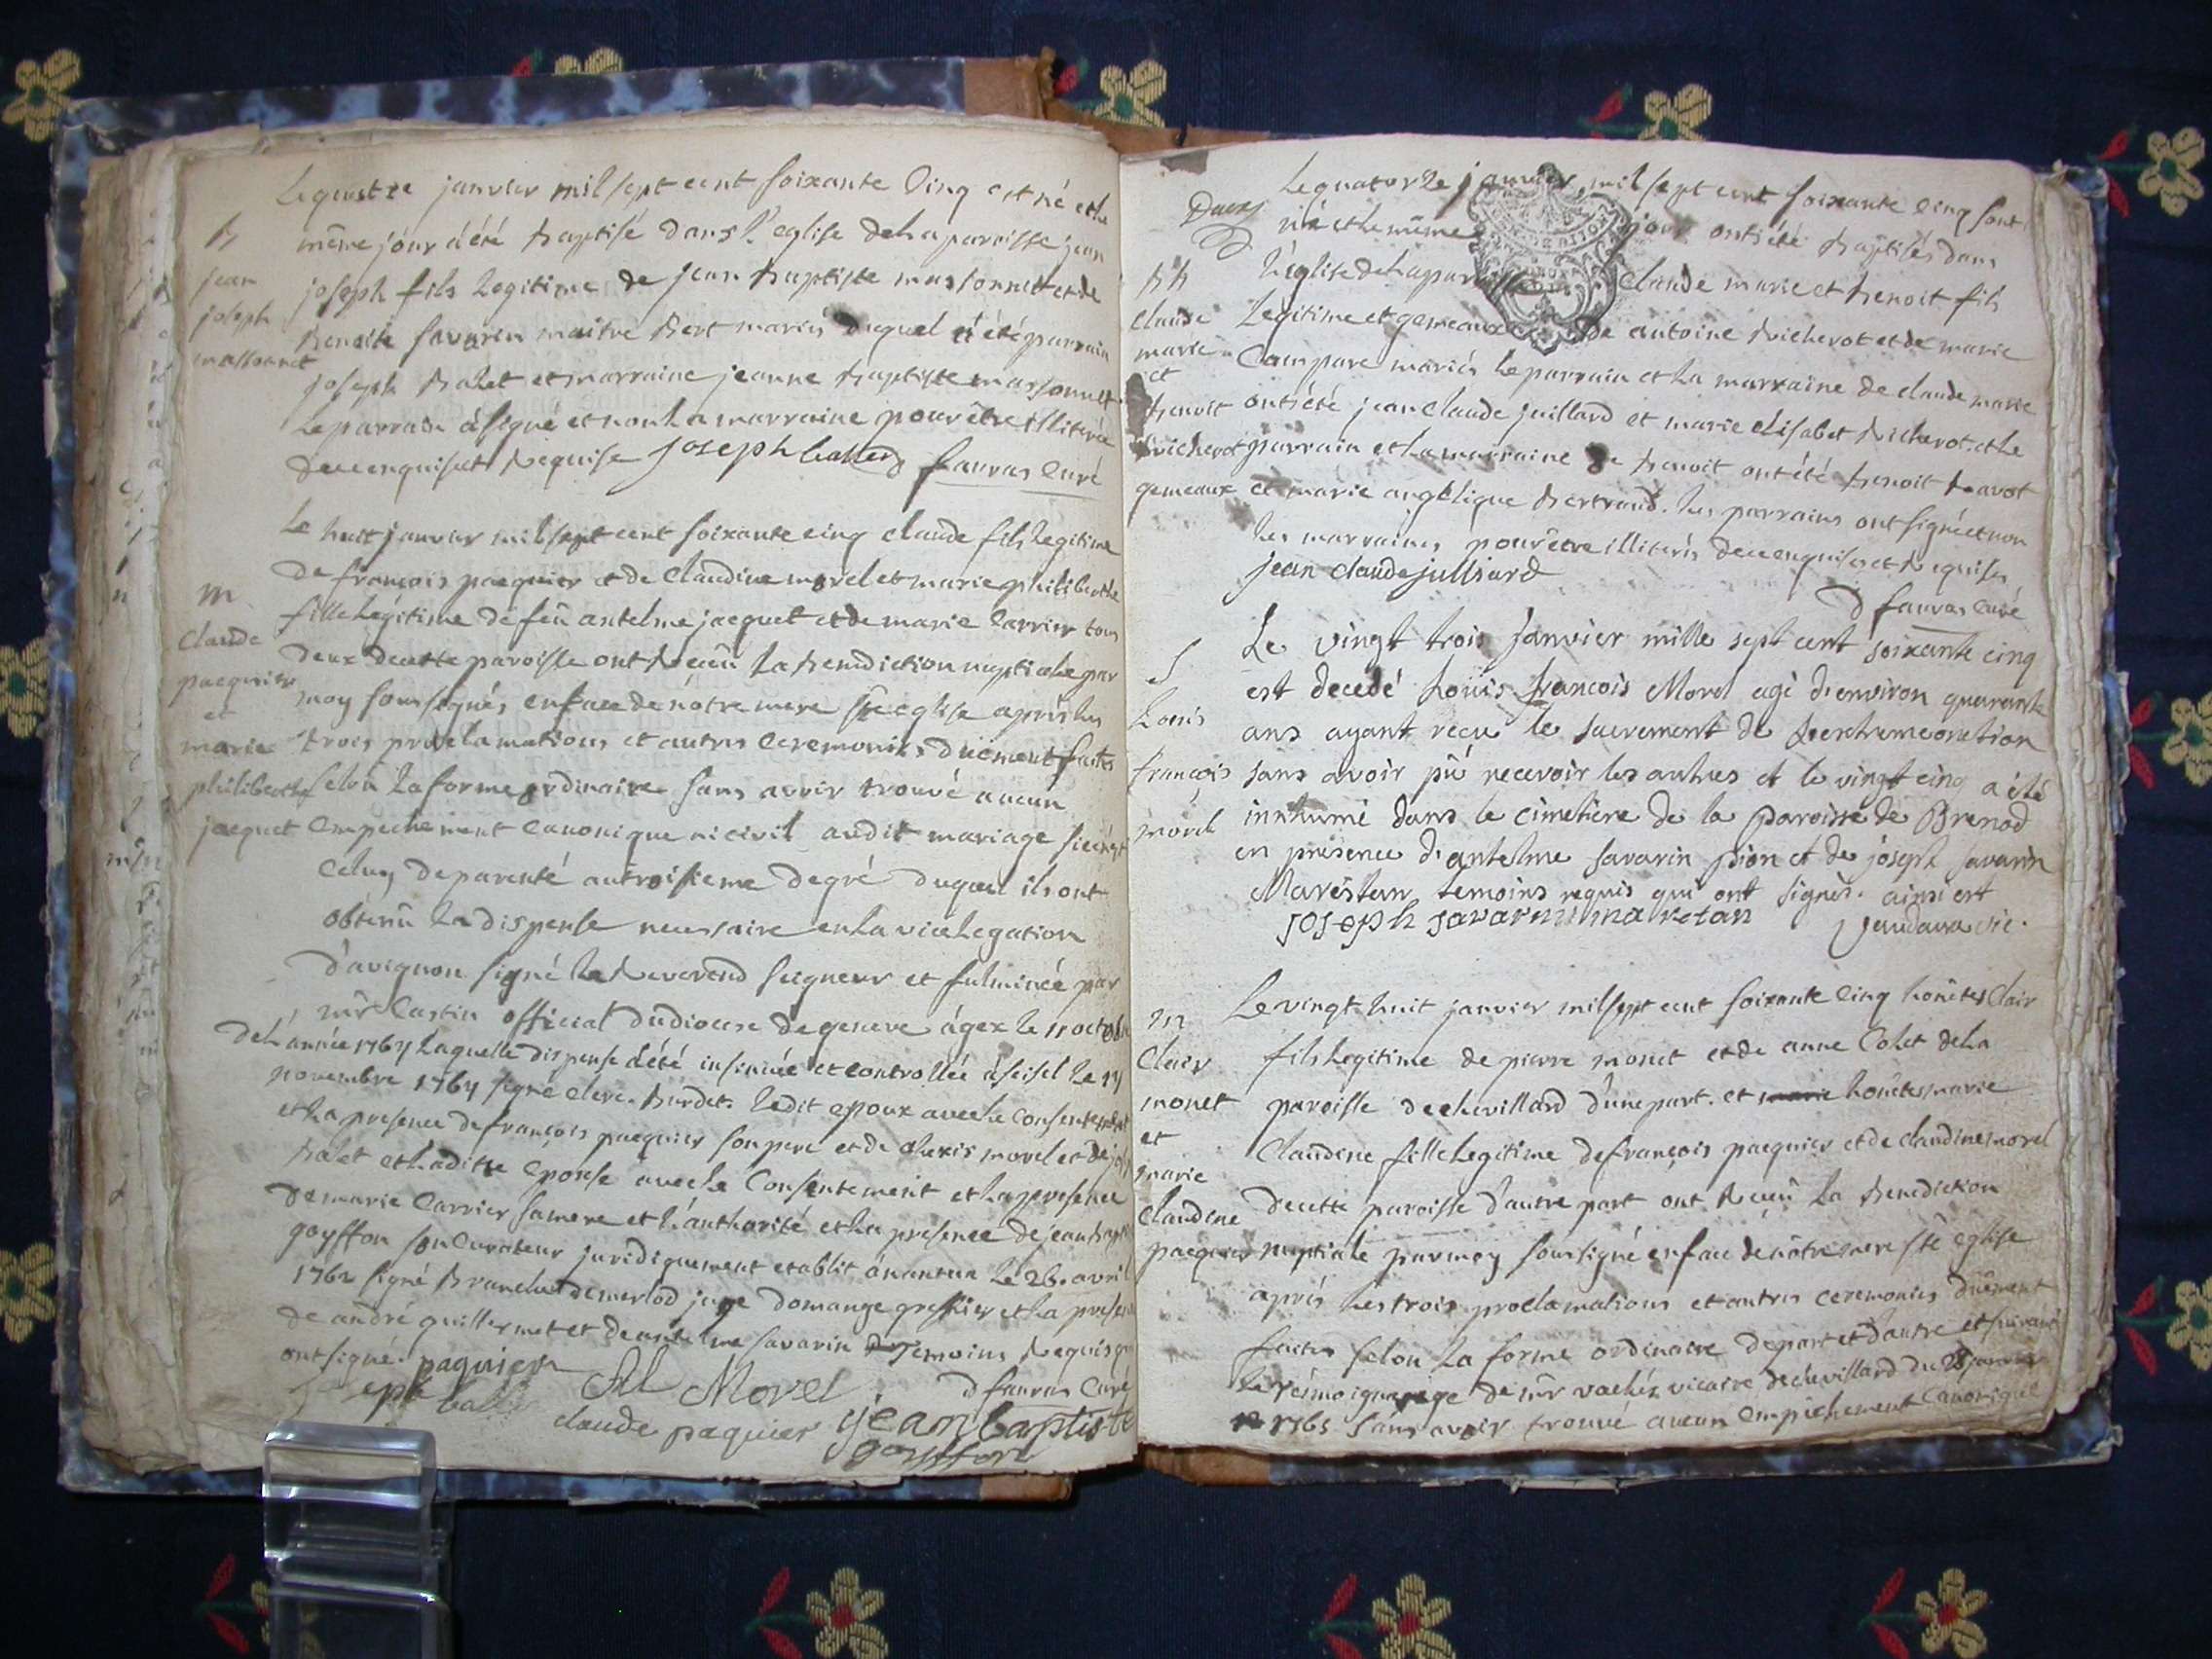 Le quatre janvier mil sept cent soixante cinq est né et le
même jour a été baptisé dans l'eglise de la paroisse jean
joseph fils legitime de jean baptiste massonnet et de
benoite savarin maitre bert mariés duquel a été parrain
joseph balet et marraine jeanne baptiste massonnet
le parrain a signé et non la marraine pour être illiterée
de ce enquise et requise joseph ballet favras curé
B
jean
joseph
massonnet
Le huit janvier mil sept cent soixante cinq claude fils legitime
de francois pacquier et de claudine morel et marie philiberthe
fille legitime de feu antelme jacquet et de marie carrier tous
deux de cette paroisse ont receu la benediction nuptiale par
moy soussignés en face de nôtre mere ste eglise après les
trois proclamations et autres ceremonies duement faites
selon la forme ordinaire sans avoir trouvé aucun
empechement canonique ni civil audit mariage si ce n'est
celuy de parenté au troisieme degré duquel ils ont
obtenû la dispense necessaire en la vice legation
d'avignon signé le Reverend seigneur et fulminée par
mr Castin official du diocese de geneve à gex le 11 octobre
de l'année 1764 laquelle dispense a été insinuée et controllée a seisel le 19
novembre 1764 signé clerc. burdet. ledit epoux avec le consentement
et la presence de francois pacquier son pere et de alexis morel et de joseph
balet et ladite epouse avec le consentement et la presence
de marie carrier sa mere et l'authorité et la presence de jean baptiste
goyffon son curateur juridiquement etablit a nantua le 26. avril
1762 signé branche demerlod juge domange greffier et la presence
de andré guillermet et de antelme savarin temoins requis qui
ont signé. paquier
joseph ballet Al Morel. d favras curé
claude paquier jean baptiste
goyffon
m
claude
pacquier
et
marie
philiberthe
jacquet
Le quatorze janvier mil sept cent soixante cinq sont
né et le même jour ont été baptisés dans
l'église de la paroisse claude marie et benoit fils
legitime et gemeaux de antoine bicherot et de marie
compare mariés le parrain et la marraine de claude marie
ont été jean claude juillard et marie elisabet bicherot. et le
parrain et la marraine de benoit ont été benoit
et marie angelique bertrand. les parrains ont signé et non
les marraines pour être illiterés de ce enquises et requises
jean claude julliard
d favras curé
bb
claude
marie
et
benoit
bicherot
gemeaux
Le vingt trois janvier mille sept cent soixante cinq
est decedé Louis francois Morel agé d'environ quarante
ans ayant recu le sacrement de l'extremeonction
sans avoir pû recevoir les autres et le vingt cinq a été
inhumé dans le cimetiere de la paroisse de Brenod
en presence d'antelme savarin pion et de joseph savarin
Marêstan temoins requis qui ont signés. ainsi est
joseph savarin maretan vic.
S
Louis
françois
morel
Le vingt huit janvier mil sept cent soixante cinq honêtes Clair
fils legitime de pierre monet et de anne Colet de la
paroisse de chevillard d'une part. et marie honêtes marie
claudine fille legitime de françois pacquier et de claudine morel
de cette paroisse d'autre part ont receu la benediction
nuptiale par moy soussigné en face de nôtre mere ste eglise
aprés les trois proclamations et autres ceremonies duêment
faites selon la forme ordinaire de part et d'autre et suivant
le témoignage de mr vachez vicaire de chevillard du 28 janvier
1765 sans avoir trouvé aucun empechement canonique
m
Clair
monet
et
marie
claudine
pacquier